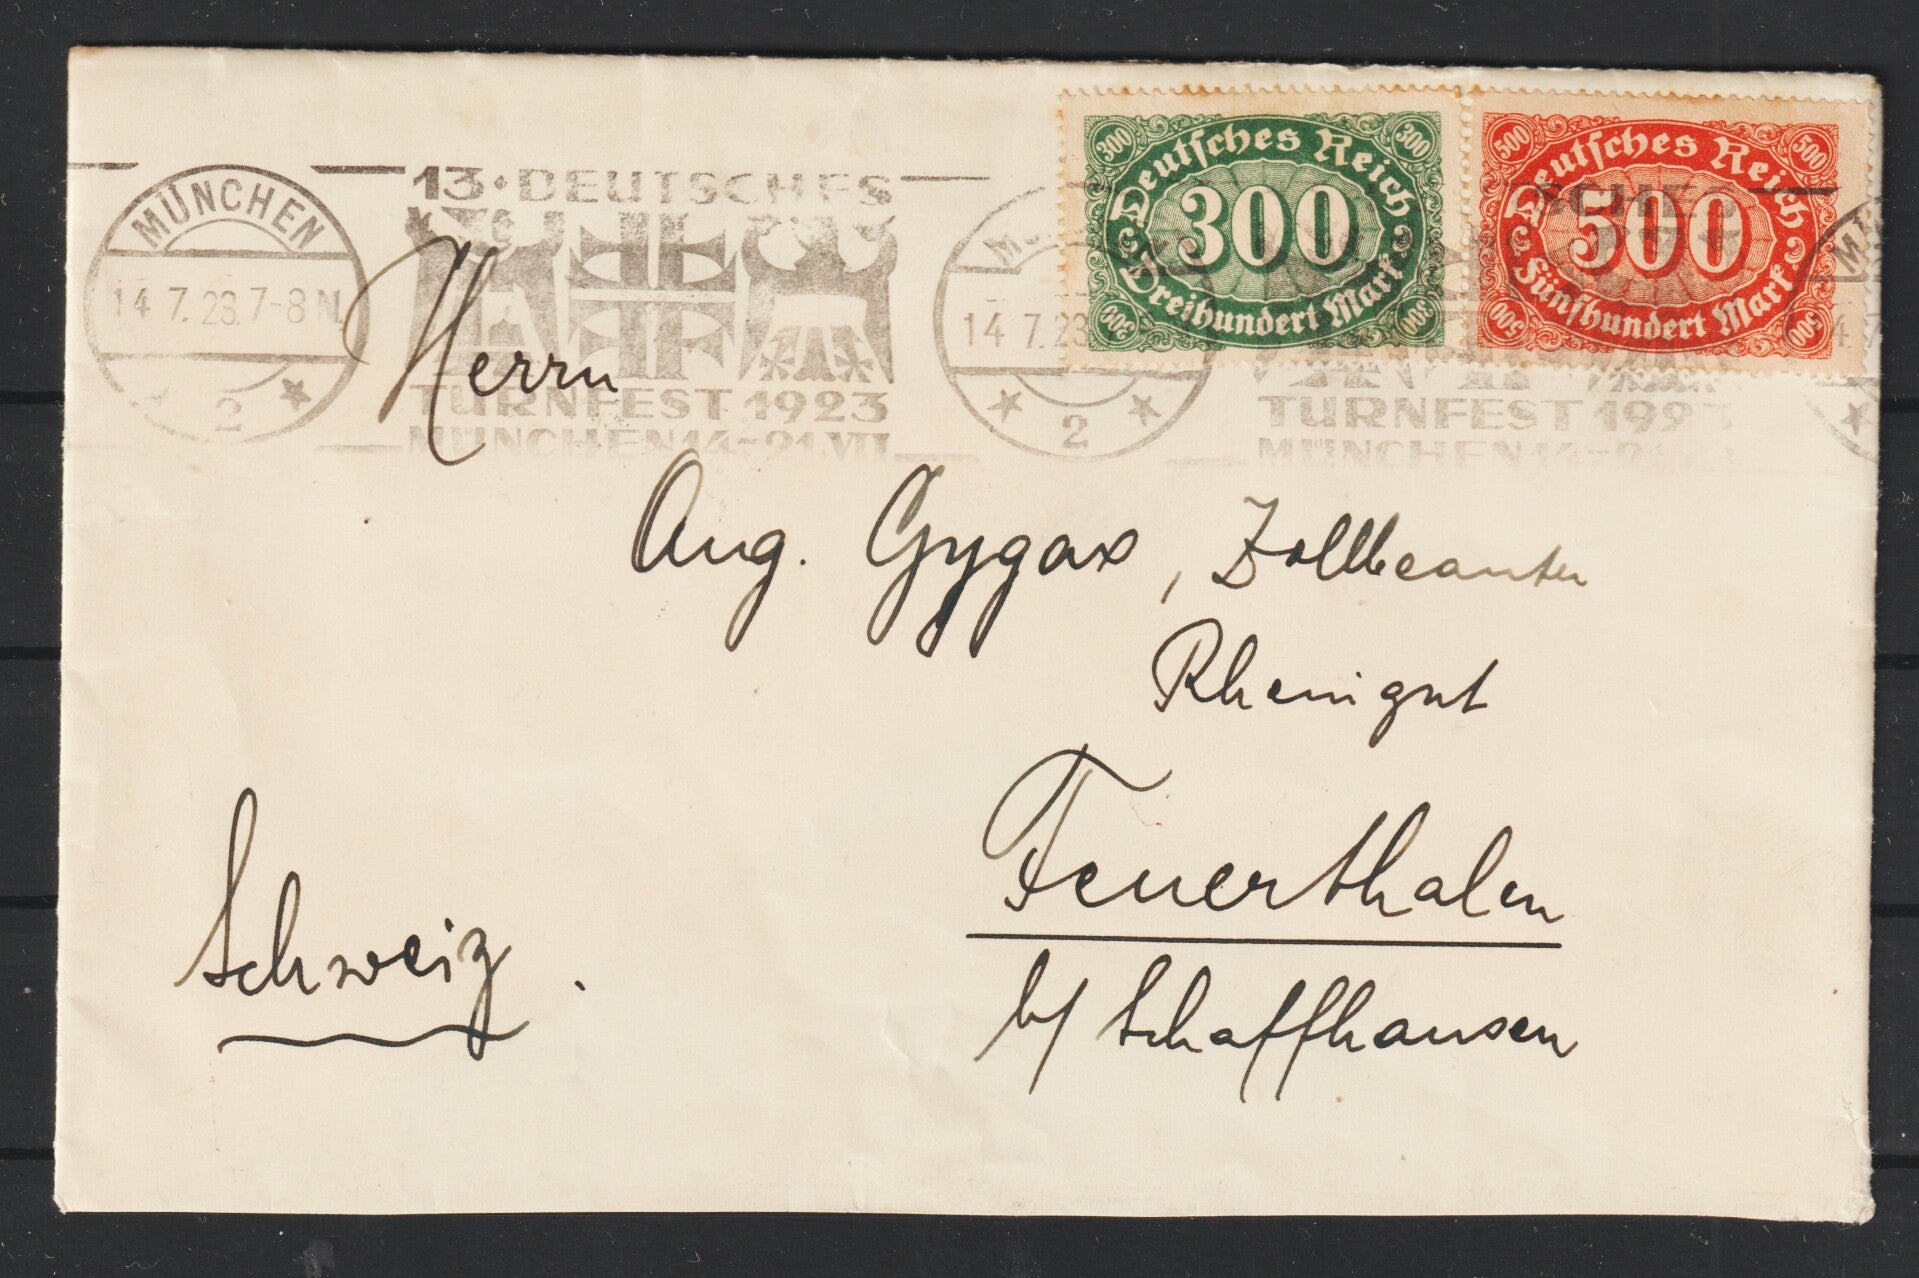 13. DEUTSCHES
MÜNCHEN
14 7. 23. 7-8 N.
2
TURNFEST 1923
MÜNCHEN 14-21.VII
14 7. 23
2
SCHES
TURNFEST 1923
MÜNCHEN 14-2
300 300
Deutsches Reich
300
Dreihundert Mark
300 300
500 500
Deutsches Reich
500
Fünfhundert Mark
500 500
Herrn
Aug. Gygax, Zollbeamter
Rheingut
Feuerthalen
b/ Schaffhausen
Schweiz.